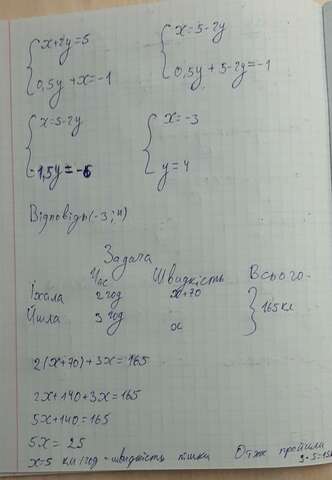 x+2y=5
0,5y+x=-1
x=5-2y
0,5y+5-2y=-1
x=5-2y
-1,5y=-6
x=-3
y=4
Відповідь(-3;4)
Задача
Час Швидкість Всього
Їхала 2 год x+70
Йшла 3 год x
165 км
2(x+70)+3x=165
2x+140+3x=165
5x+140=165
5x=25
x=5 км/год - швидкість пішки Отже пройшла
3·5=15